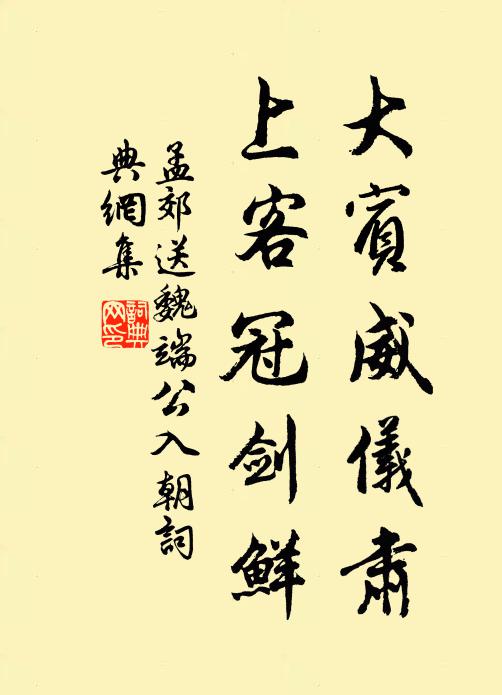 大賓威儀肅
上客冠劍鮮
孟郊送魏端公入朝詞
典網集
詞典
网印